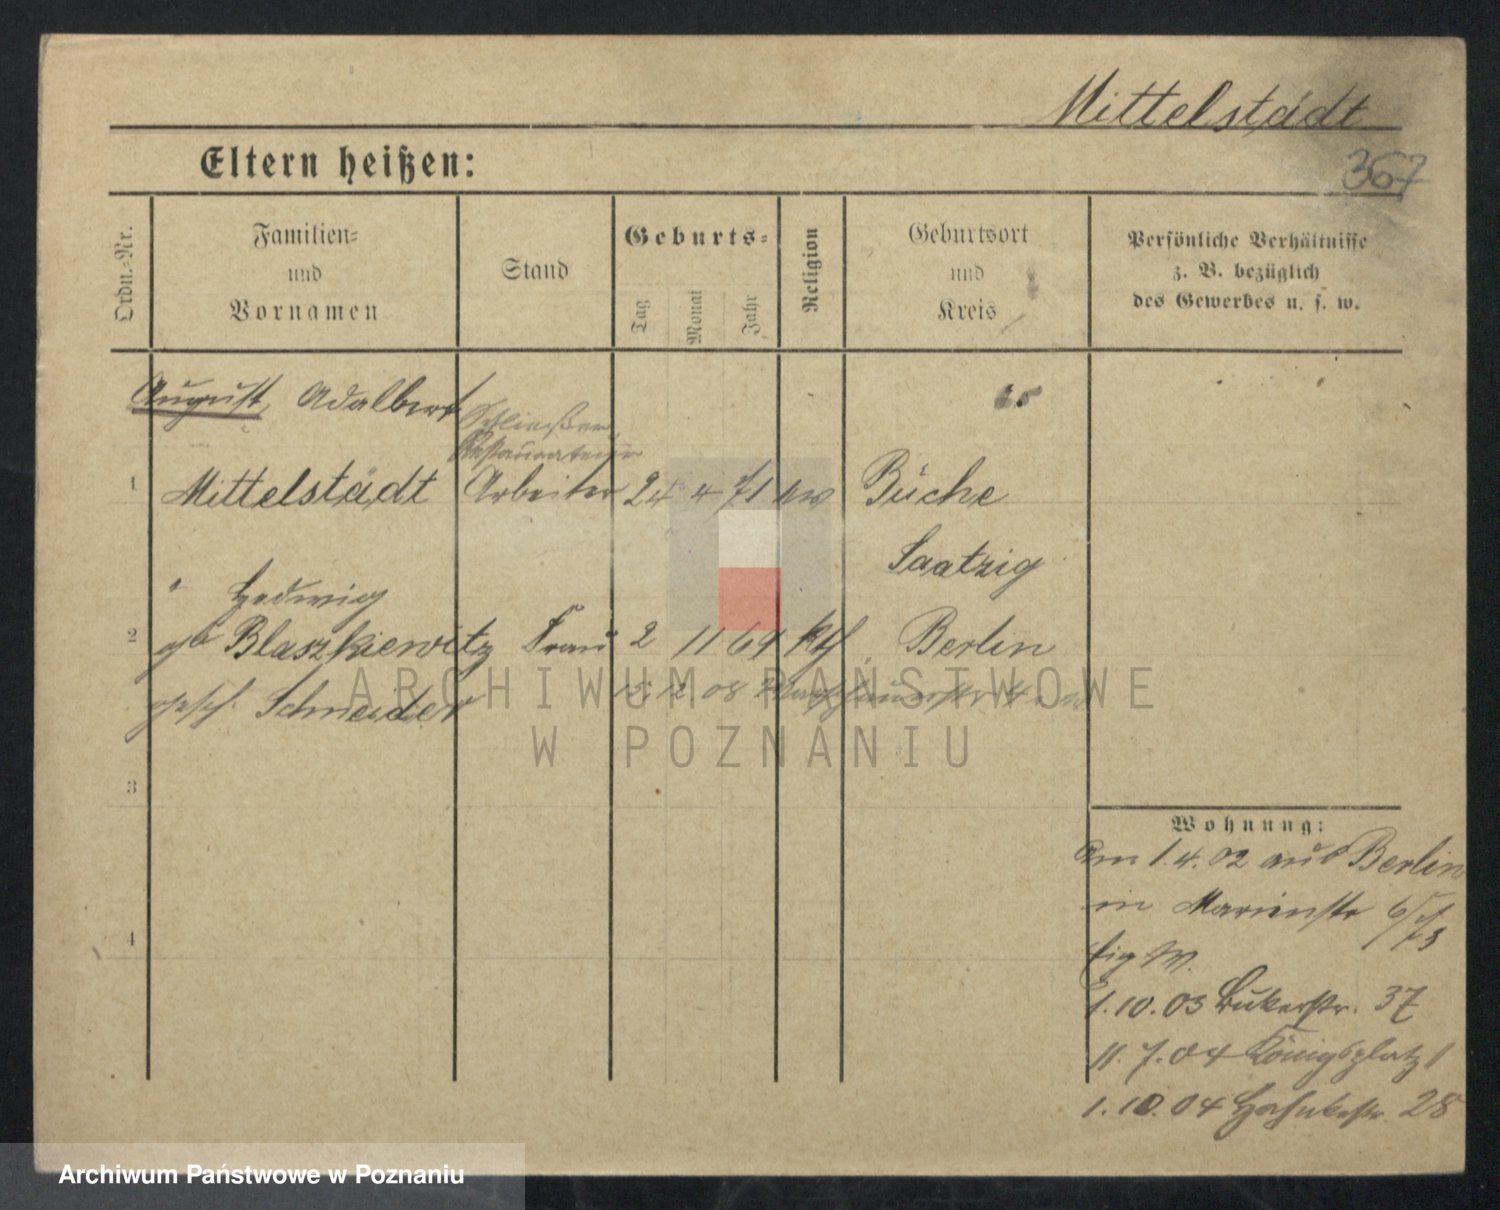 Mittelstädt
367
Eltern heißen:
Ordn.-Nr.
Familien-
und
Vornamen
Stand
Geburts-
Tag
Monat
Jahr
Religion
Geburtsort
und
Kreis
Persönliche Verhältnisse
z. B. bezüglich
des Gewerbes u. s. w.
August, Adalbert
Schließer
Restaurateur
1 Mittelstädt Arbeiter 24 4 71 ew Büche
Saatzig
" Hedwig
2 gb Blaszkiewitz Frau 2 11 69 kth Berlin
gesch. Schneider 15. 12 08
ARCHIWUM PAŃSTWOWE
W POZNANIU
3
4
Wohnung:
Am 1.4.02 aus Berlin
in Marienstr
Eig W.
1.10.03 Bukerstr. 37
11.7.04 Königsplatz 1
1.10.04 28
Archiwum Państwowe w Poznaniu